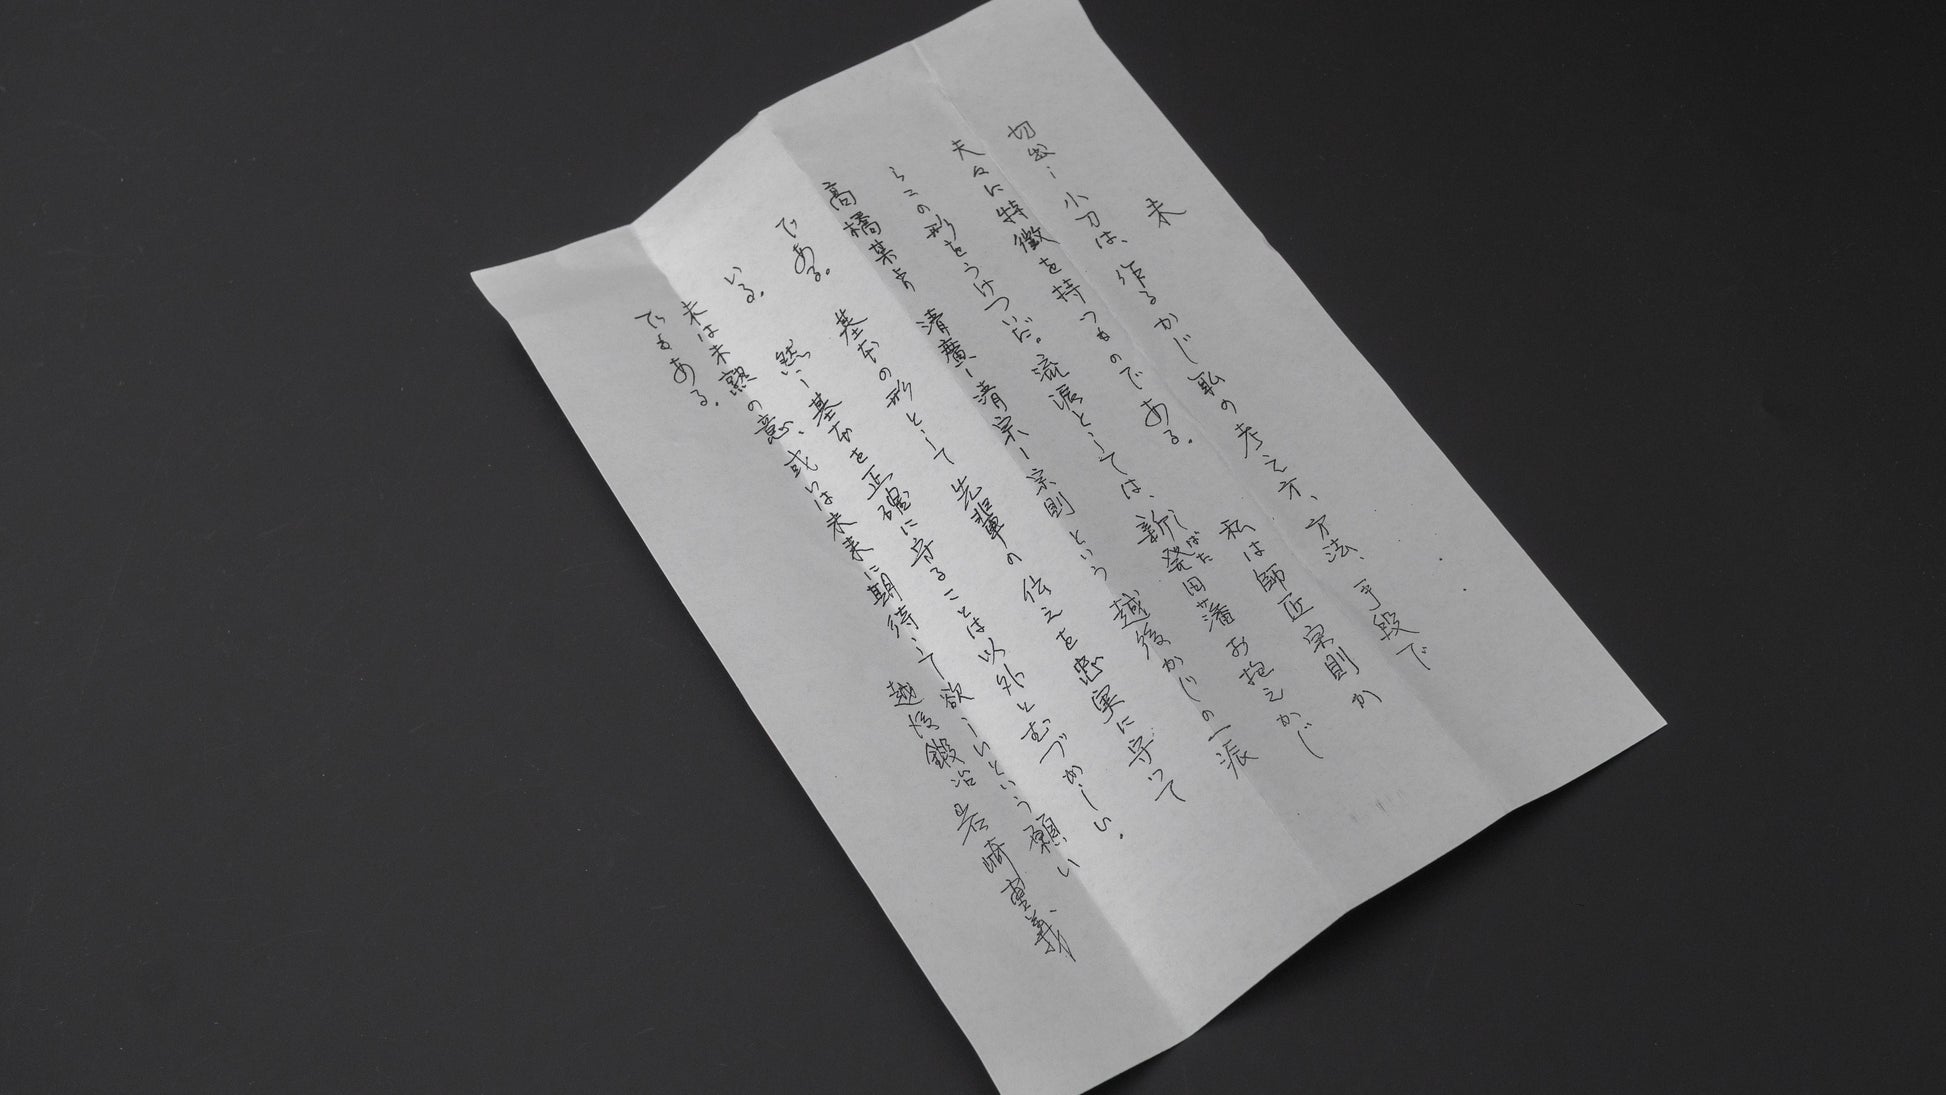 未
切出し小刀は、作るかじ私の考え方、方法、手段で
夫々に特徴を持つものである。 私は師匠宗則か
らこの形をうけついだ。流派としては、新発田藩お抱えかじ
しばた
高橋某より 清廣―清宗―宗則という 越後かじの一派
である。 基本の形として 先輩の伝えを忠実に守って
いる。 然し基本を正確に守ることは以外とむづかしい。
未は未熟の意、或いは未来に期待して欲しいという願い
でもある。
越後鍛冶 岩崎重義